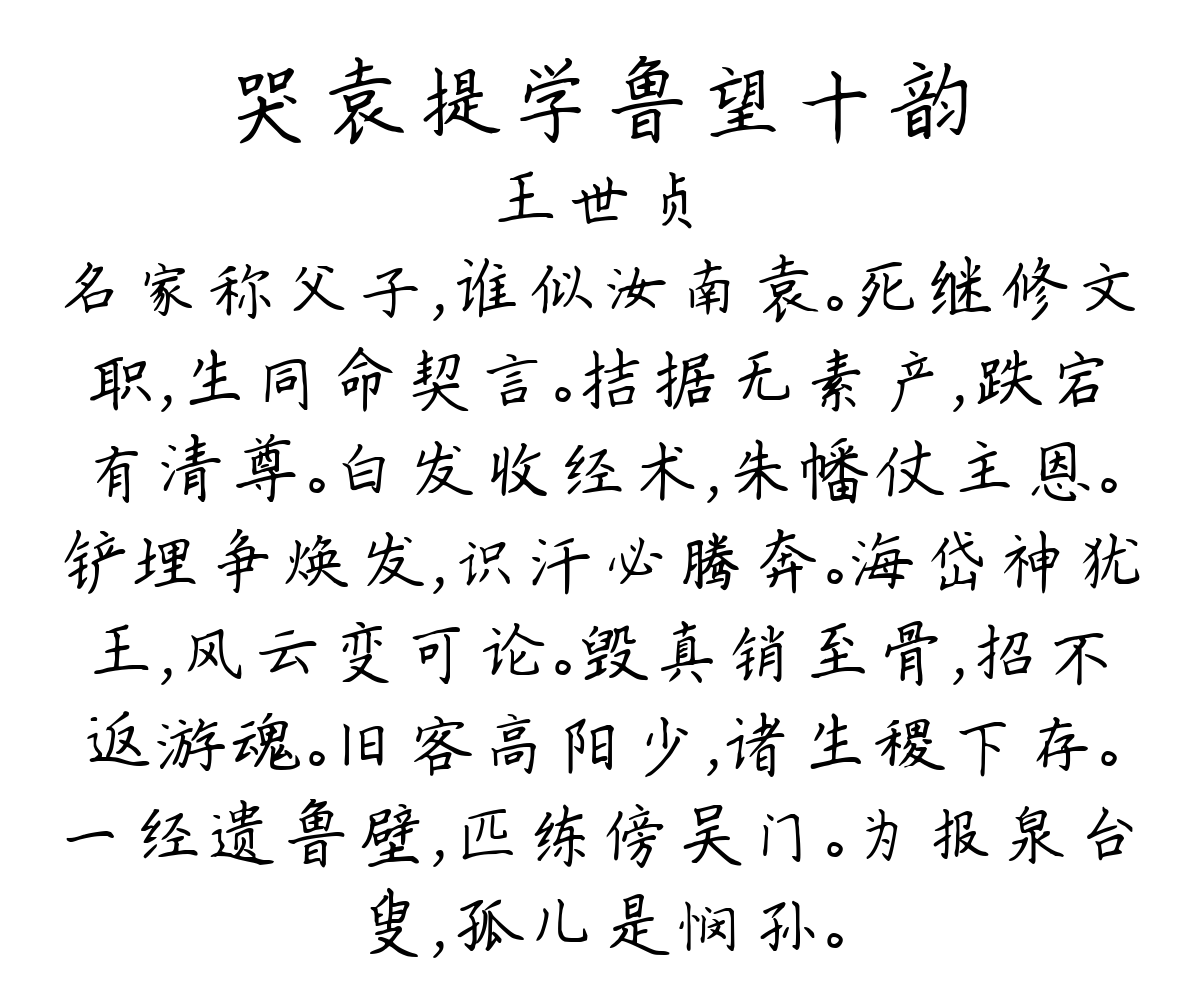 哭袁提学鲁望十韵
王世贞
名家称父子,谁似汝南袁。死继修文
职,生同命契言。拮据无素产,跌宕
有清尊。白发收经术,朱幡仗主恩。
铲埋争焕发,识汗必腾奔。海岱神犹
王,风云变可论。毁真销至骨,招不
返游魂。旧客高阳少,诸生稷下存。
一经遗鲁壁,匹练傍吴门。为报泉台
叟,孤儿是悯孙。